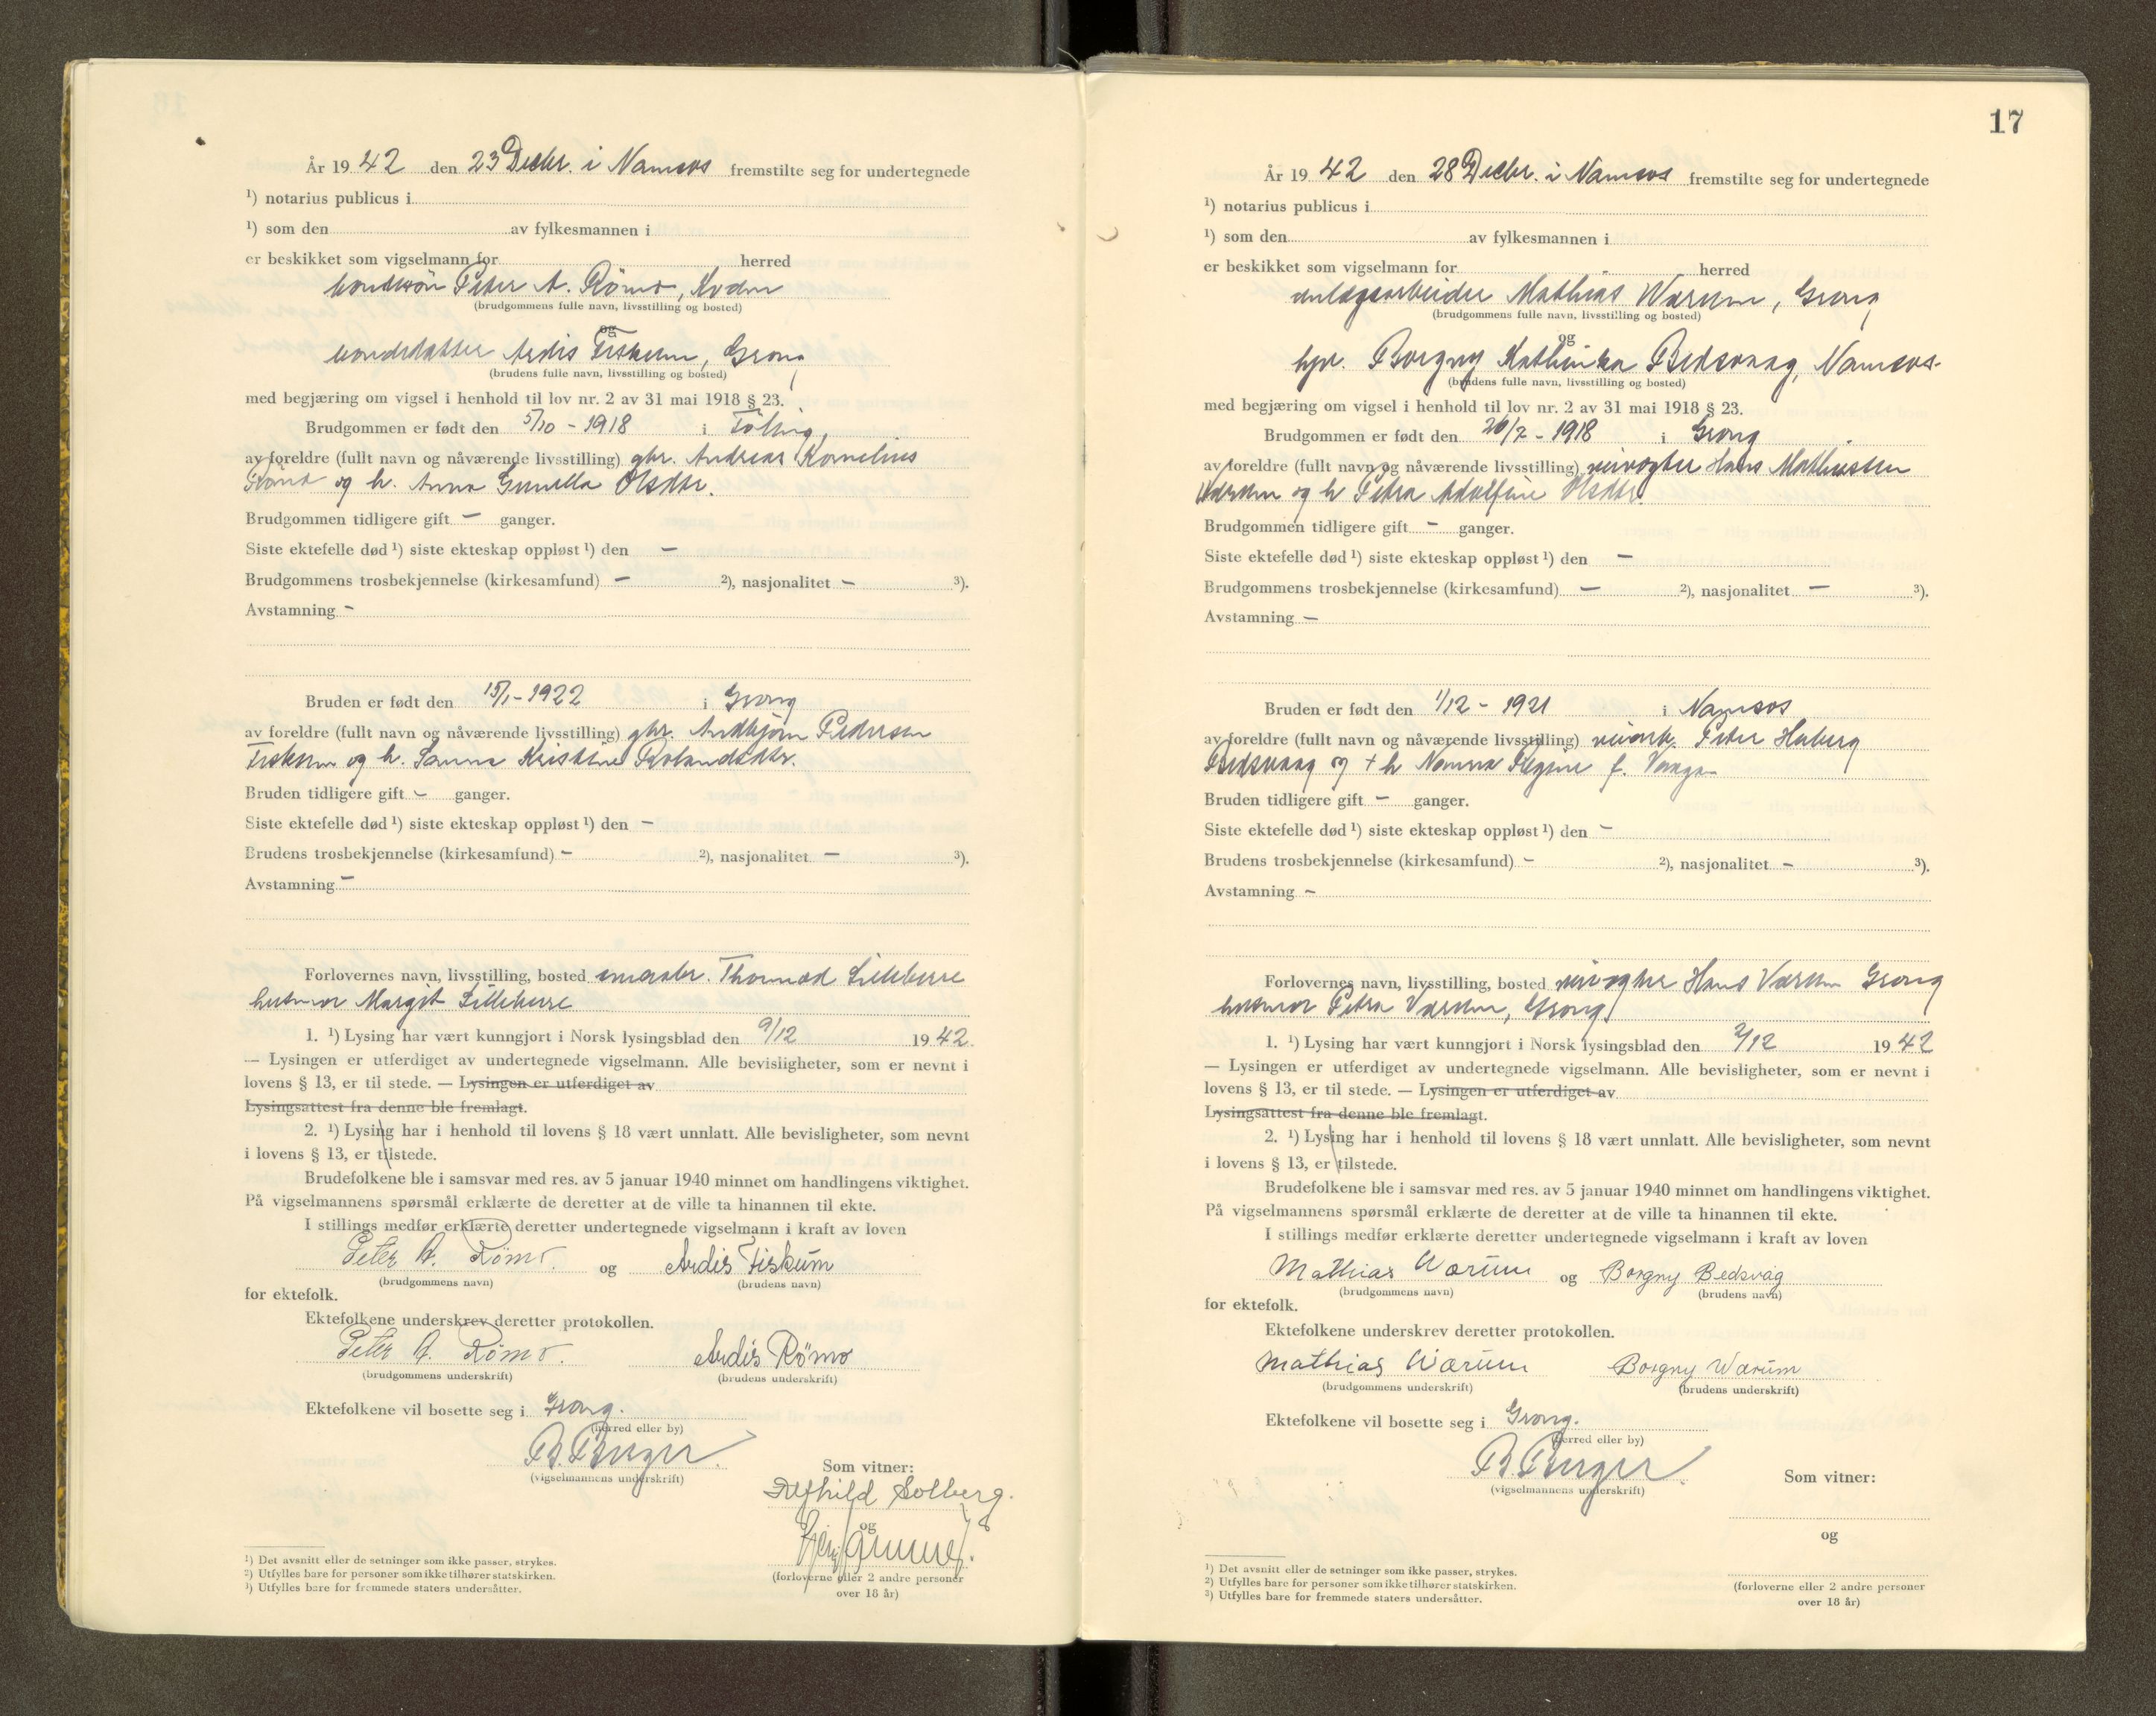 År 19 42 den 23 Decbr. i Namsos fremstilte seg for undertegnede
¹) notarius publicus i
¹) som den av fylkesmannen i
er beskikket som vigselmann for herred
bondesøn Peter A. Römo, Kvam
(brudgommens fulle navn, livsstilling og bosted)
og
bondedatter Ardis Fiskum, Grong
(brudens fulle navn, livsstilling og bosted)
med begjæring om vigsel i henhold til lov nr. 2 av 31 mai 1918 § 23.
Brudgommen er født den 5/10 - 1918 i
av foreldre (fullt navn og nåværende livsstilling) gbr. Andreas Kornelius
og h. Anna Gunilla Olsdtr.
Brudgommen tidligere gift – ganger.
Siste ektefelle død ¹) siste ekteskap oppløst ¹) den –
Brudgommens trosbekjennelse (kirkesamfund) – ²), nasjonalitet – ³).
Avstamning –
Bruden er født den 15/1 - 1922 i Grong
av foreldre (fullt navn og nåværende livsstilling) gbr. Andbjørn Pedersen
Fiskum og h. Sanna Kristine Rolandsdtr.
Bruden tidligere gift – ganger.
Siste ektefelle død ¹) siste ekteskap oppløst ¹) den –
Brudens trosbekjennelse (kirkesamfund) – ²), nasjonalitet – ³).
Avstamning –
Forlovernes navn, livsstilling, bosted Thormod
husmor Margit
1. ¹) Lysing har vært kunngjort i Norsk lysingsblad den 9/12 19 42.
— Lysingen er utferdiget av undertegnede vigselmann. Alle bevisligheter, som er nevnt i
lovens § 13, er til stede. — Lysingen er utferdiget av
Lysingsattest fra denne ble fremlagt.
2. ¹) Lysing har i henhold til lovens § 18 vært unnlatt. Alle bevisligheter, som nevnt
i lovens § 13, er tilstede.
Brudefolkene ble i samsvar med res. av 5 januar 1940 minnet om handlingens viktighet.
På vigselmannens spørsmål erklærte de deretter at de ville ta hinannen til ekte.
I stillings medfør erklærte deretter undertegnede vigselmann i kraft av loven
Peter A. Römo. og Ardis Fiskum
(brudgommens navn) (brudens navn)
for ektefolk.
Ektefolkene underskrev deretter protokollen.
Peter A. Römo. Ardis Römo
(brudgommens underskrift) (brudens underskrift)
Ektefolkene vil bosette seg i Grong.
(herred eller by)
B. Burger
(vigselmannens underskrift)
Som vitner:
Alfhild Solberg.
og
(forloverne eller 2 andre personer
over 18 år)
¹) Det avsnitt eller de setninger som ikke passer, strykes.
²) Utfylles bare for personer som ikke tilhører statskirken.
³) Utfylles bare for fremmede staters undersåtter.
17
År 19 42 den 28 Decbr. i Namsos fremstilte seg for undertegnede
¹) notarius publicus i
¹) som den av fylkesmannen i
er beskikket som vigselmann for herred
anlægsarbeider Mathias Wærum, Grong
(brudgommens fulle navn, livsstilling og bosted)
og
Borgny Kathinka Bedsvaag, Namsos
(brudens fulle navn, livsstilling og bosted)
med begjæring om vigsel i henhold til lov nr. 2 av 31 mai 1918 § 23.
Brudgommen er født den 26/7 - 1918 i Grong
av foreldre (fullt navn og nåværende livsstilling) veivogter Hans Mathiassen
Værum og h Petra Adolfine Olsdtr.
Brudgommen tidligere gift – ganger.
Siste ektefelle død ¹) siste ekteskap oppløst ¹) den –
Brudgommens trosbekjennelse (kirkesamfund) – ²), nasjonalitet – ³).
Avstamning –
Bruden er født den 1/12 - 1921 i Namsos
av foreldre (fullt navn og nåværende livsstilling) Peter Hoberg
Bedsvaag og + h Nanna Regine f.
Bruden tidligere gift – ganger.
Siste ektefelle død ¹) siste ekteskap oppløst ¹) den –
Brudens trosbekjennelse (kirkesamfund) – ²), nasjonalitet – ³).
Avstamning –
Forlovernes navn, livsstilling, bosted veivogter Hans Værum Grong
husmor Petra Værum, Grong
1. ¹) Lysing har vært kunngjort i Norsk lysingsblad den 2/12 19 42
— Lysingen er utferdiget av undertegnede vigselmann. Alle bevisligheter, som er nevnt i
lovens § 13, er til stede. — Lysingen er utferdiget av
Lysingsattest fra denne ble fremlagt.
2. ¹) Lysing har i henhold til lovens § 18 vært unnlatt. Alle bevisligheter, som nevnt
i lovens § 13, er tilstede.
Brudefolkene ble i samsvar med res. av 5 januar 1940 minnet om handlingens viktighet.
På vigselmannens spørsmål erklærte de deretter at de ville ta hinannen til ekte.
I stillings medfør erklærte deretter undertegnede vigselmann i kraft av loven
Mathias Wærum og Borgny Bedsvåg
(brudgommens navn) (brudens navn)
for ektefolk.
Ektefolkene underskrev deretter protokollen.
Mathias Wærum Borgny Wærum
(brudgommens underskrift) (brudens underskrift)
Ektefolkene vil bosette seg i Grong.
(herred eller by)
B. Burger
(vigselmannens underskrift)
Som vitner:
og
(forloverne eller 2 andre personer
over 18 år)
¹) Det avsnitt eller de setninger som ikke passer, strykes.
²) Utfylles bare for personer som ikke tilhører statskirken.
³) Utfylles bare for fremmede staters undersåtter.